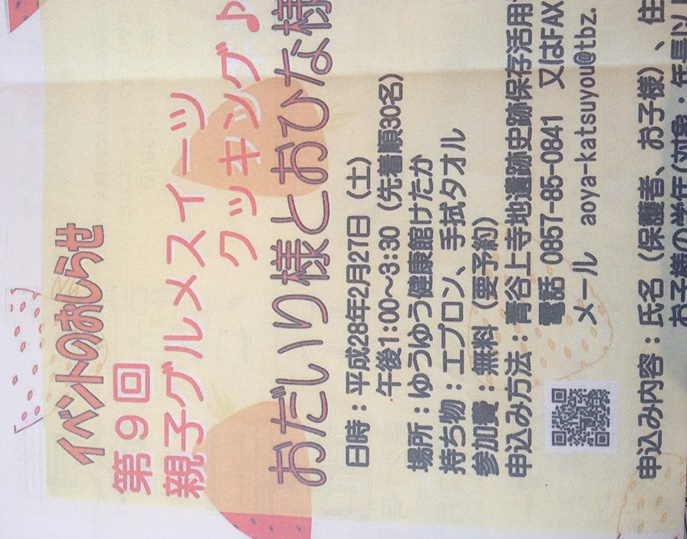 イベントのおしらせ
第9回
親子グルメスイーツ
クッキング♪
おだいり様とおひな様
日時：平成28年2月27日（土）
午後1:00〜3:30（先着順30名）
場所：ゆうゆう健康館けたか
持ち物：エプロン、手拭タオル
参加費　無料（要予約）
申込み方法：青谷上寺地遺跡史跡保存活用
電話　0857-85-0841　又はFAX
メール　aoya-katsuyou@tbz.
申込み内容：氏名（保護者、お子様）、住
お子様の学年(対象・年長以